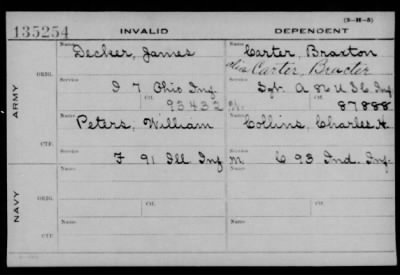 (3-H-5)
135254 INVALID DEPENDENT
Name: Decker, James Name: Carter, Braxton
alias Carter, Bracter
ARMY
ORIG. Service: I 7 Ohio Inf. Service: Sgt. A 82 U.S.C. Inf.
Ctf. 93432 Ctf. M. 87888
Name: Peters, William Name: Collins, Charles H.
CTF. Service: F 91 Ill Inf Service: M C 93 Ind. Inf.
NAVY
ORIG. Name: Name:
Service: Ctf. Service: Ctf.
CTF. Name: Name: